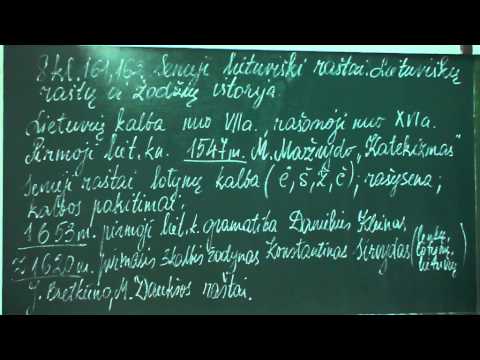 8 kl. 161, 162 Senieji lietuviški raštai. Lietuviškų
raštų ir žodžių istorija
Lietuvių kalba nuo VIIa., rašonoji nuo XVIa.
Pirmoji liet. kn. 1547 m. M. Mažvydo „Katekizmas"
Senieji raštai lotynų kalba (ė, š, ž, č); rašysena;
kalbos pakitimai:
1653 m. pirmoji liet. k. gramatika Danielius Kleinas,
~1620 m. pirmasis 3kalbis žodynas Konstantinas Sirvydas (lenkų,
lotynų,
lietuvių)
J. Bretkūno, M. Daukšos raštai.